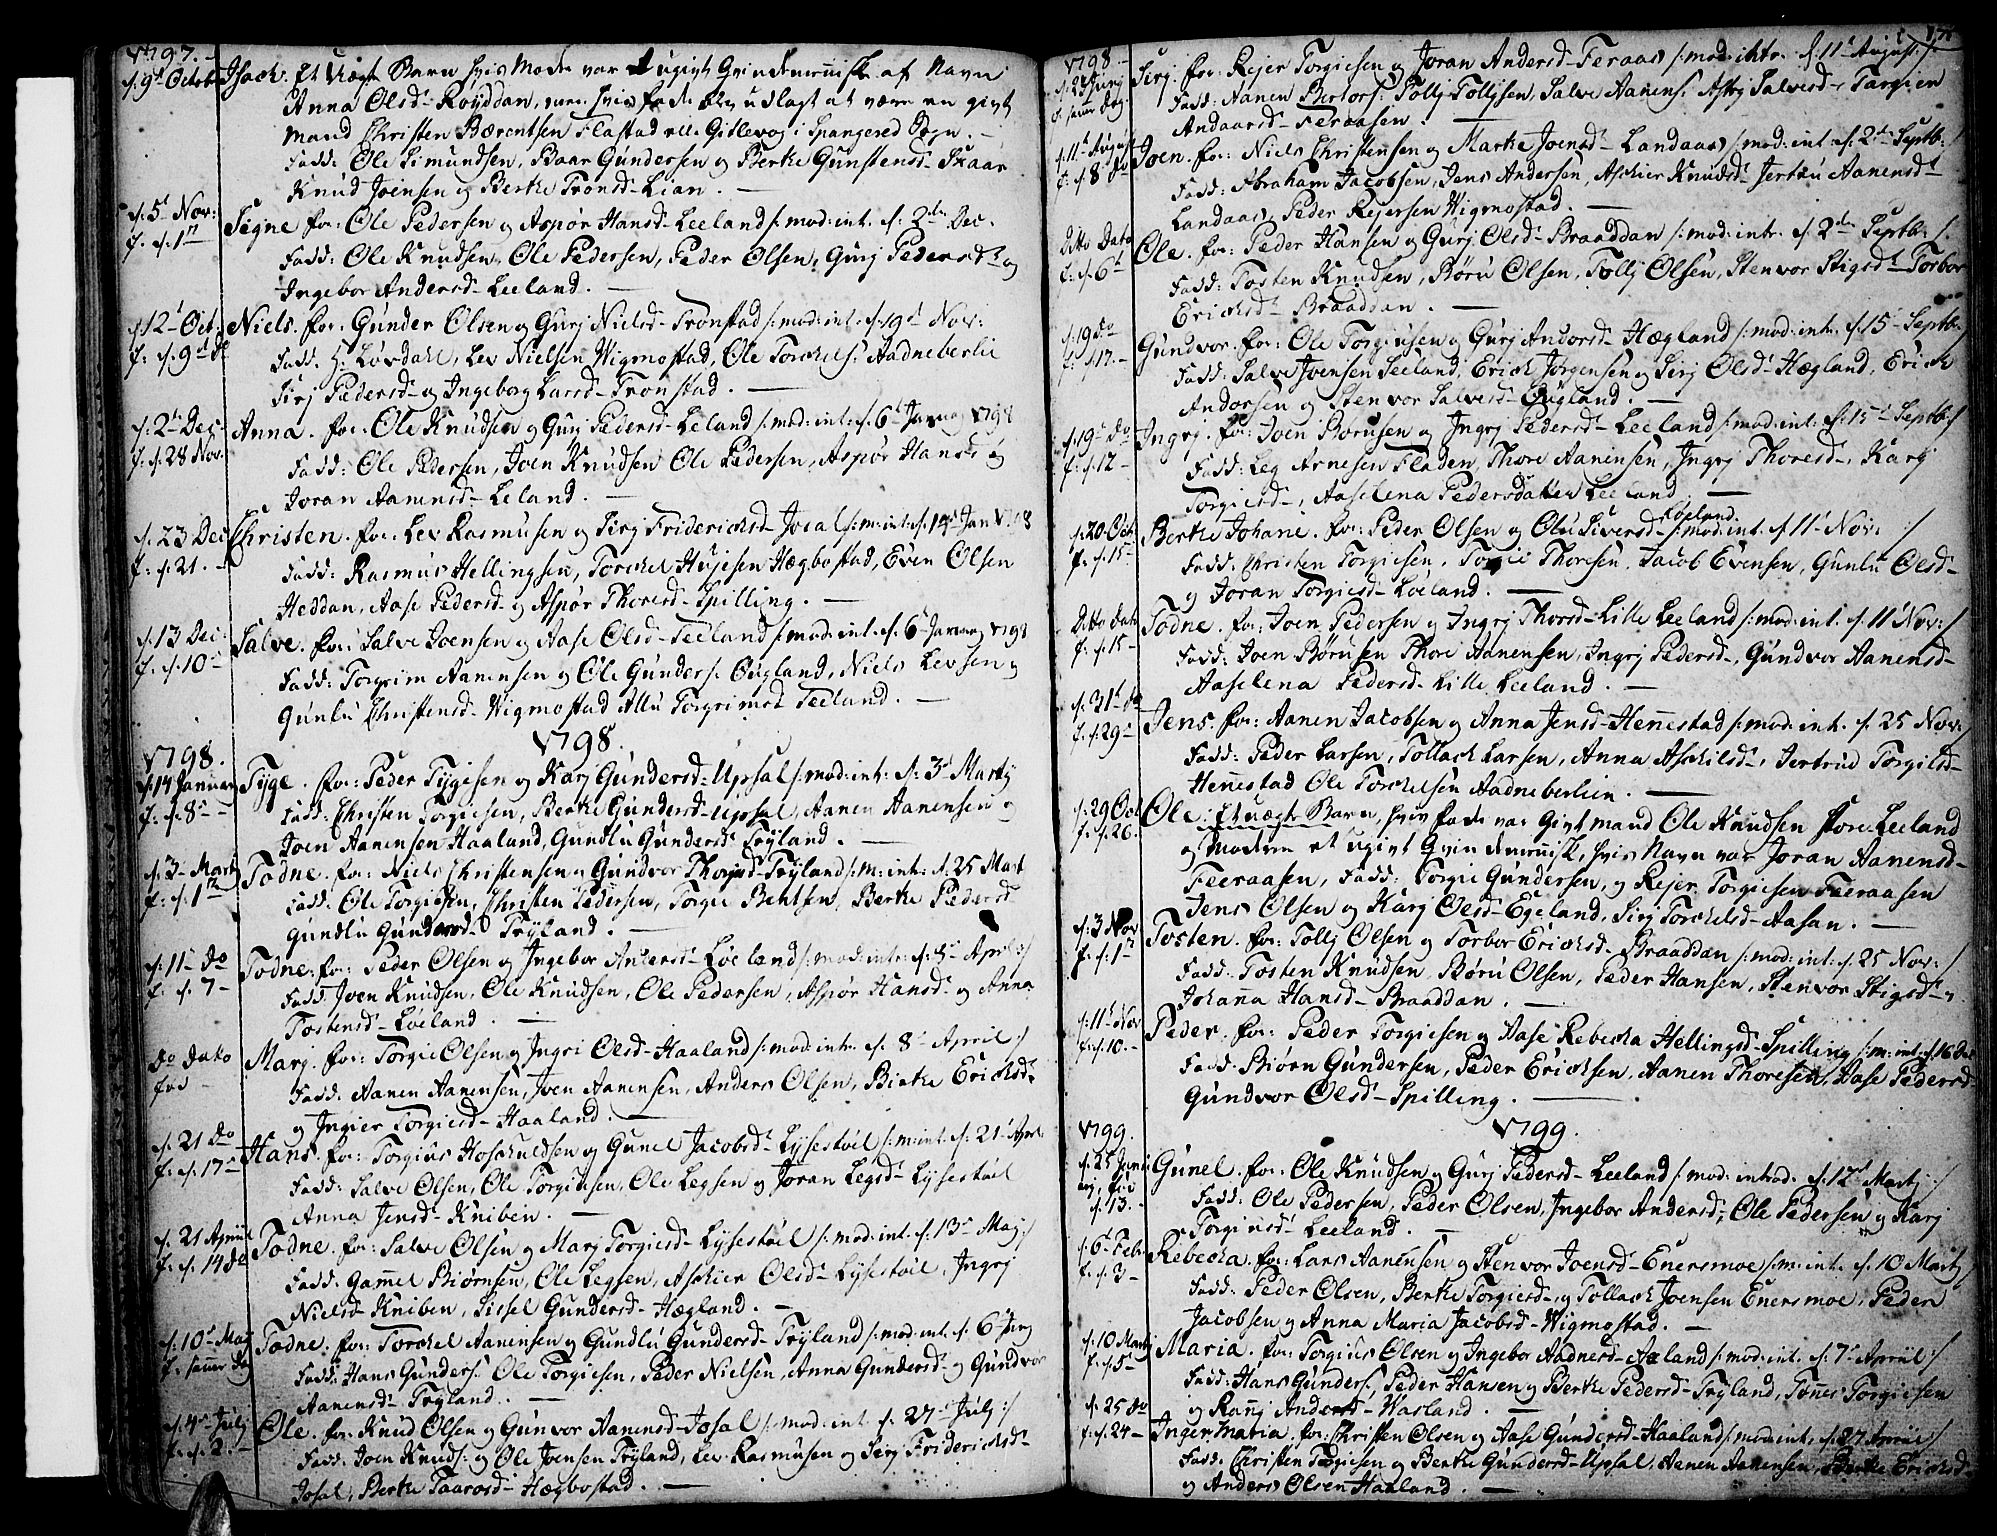 1797.
d: 9d Octobr Isach. Et Uægte Barn hvis Moder var et ugivt Qvindemenniske af Navn
Anna Olsd- Røyddan, men hvis fader blev udlagt at være en givt
Mand Christen Bærentsen Flastad elle Gitlevog i Spangereds Sogn. -
Fadd: Ole Simundsen, Baar Gundersen og Berte Gunstensd- Skaar
Knud Joensen og Berte Tronsd- Lian. -
d: 5t Nov: Signe for: Ole Pedersen og Aspør Hansd- Leeland /: mod: int. d. 2den Dec.
f. d. 1n
Fadd: Ole Knudsen, Ole Pedersen, Peder Olsen, Gurj Pedersd og
Ingebor Andersd- Leeland. -
d: 12t Oct: Niels. for: Gunder Olsen og Gurj Nielsd- Tronstad /: mod: int. d. 19d Nov:
f: d. 9d do
Fadd. H. Løvdahl, Lev Nielsen Wigmostad, Ole Torkels: Aadneberlie
Sirj Pedersd- og Ingeborg Larsd- Tronstad. -
d: 2d Dec. Anna. for: Ole Knudsen og Gurj Pedersd- Leland /: mod: int: d. 6t Januarj 1798
f. d. 28 Nov.
Fadd: Ole Pedersen, Joen Knudsen Ole Pedersen, Aspør Hansd og
Joran Aanensd- Leland. -
d. 23 Dec Christen. for. Lev Rasmusen og Sirj Fridericksd- Josal /: m: int: d. 14d Jan 1798
f: d. 21. -
Fadd: Rasmus Hellingsen, Torckel Hujesen Hægbostad, Even Olsen
Heddan, Aase Pedersd- og Aspør Thoresd- Spilling. -
d: 13 Dec: Salve. for: Salve Joensen og Aase Olsd- Feeland /: mod: int. d. 6t Januarj 1798
f. d. 10d
Fadd: Torgrim Aanensen og Ole Gunders: Ougland, Niels Levsen og
Gunlu Christensd- Wigmostad Allu Torgrimsd Feeland. -
1798.
1798.
d: 14 Januarj Tyge. for: Peder Tygesen og Karj Gundersd- Upsal /: mod: int: d. 3d Martj
f: d. 8d -
Fadd: Christen Torgiesen, Berte Gundersd- Upsal, Aanen Aanensen og
Joen Aanensen Haaland, Gundlu Gundersd- Tryland. -
d. 3 Mart Todne. for: Niels Christensen og Gundvor Thorjusd- Tryland /: m: int: d. 25 Mart
f: d. 1n
Fadd: Ole Torgiesen, Christen Pedersen, Torgie Bentsen, Berte Pedersd
Gundlu Gundersd- Tryland. -
d: 11d do Todne: for: Peder Olsen og Ingebor Andersd- Løeland /: mod: int: d. 8d April :/
f. d. 7 -
Fadd: Joen Knudsen, Ole Knudsen, Ole Pedersen, Aspør Hansd- og Anna
Tostensd- Løeland. -
do dato Marj. for: Torgie Olsen og Ingri Olsd- Haaland /: mod: int. d. 8d April :/
fød -
Fadd: Aanen Aanensen, Joen Aanensen, Anders Olsen, Birte Ericksd-
og Ingier Torgiesd- Haaland. -
d. 21 do Hans. for: Torgius Hoskuldsen og Gunel Jacobsd- Lysestøil /: m: int. d. 21d April
f: d. 17d
Fadd: Salve Olsen, Ole Torgiusen, Ole Legsen og Joran Legsd- Lysestøil
Anna Jensd- Kniben. -
d. 21 Apriil Todne. for: Salve Olsen og Marj Torgiesd- Lysestøil /: mod: int. d. 13d Maj :/
f. d. 14 do
Fadd: Gamel Biørnsen, Ole Legsen, Asckier Olsd- Lysestøil, Ingrj
Nielsd- Kniben, Sissel Gundersd- Hægland. -
d: 10d Maj Todne. for: Torckel Aanensen og Gundlu Gundersd- Tryland /: mod: int. d. 6t Junj
f: samme dag
Fadd: Hans Gunders: Ole Torgiesen, Peder Nielsen, Anna Gundersd- og Gundvor
Aanensd- Tryland. -
d. 4d Julj Ole. for: Knud Olsen og Gunvor Aanensd- Josal /: mod: int. d. 27d Julj :/
f. d. 2. -
Fadd: Joen Knuds: og Ole Joensen Tryland, Lev Rasmusen og Serj Fridericksd-
Josal, Berte Taarasd- Hægbostad. -
1798 -
Sirj. for: Rejer Torgiesen og Joran Andersd- Feraas /: mod: intr. d. 11d August :/
f: samme dag.
Fadd: Aanen Bertors: Tollj Tollissen, Salve Aanens: Astrj Salvesd- Torgien
Andaarsd- Feraasen. -
d: 11t August Joen. for: Niels Christensen og Marte Joensd- Landaas /: mod: int d. 2d Septb: /
f: d. 8d do
Fadd: Abraham Jacobsen, Jens Andersen, Asckier Knudsd- Jertru Aanensd-
Landaas, Peder Rejersen Wigmostad. -
Ditto Dato Ole. for: Peder Hansen og Gurj Olsd- Braaddan /: mod: intr. d. 2d Septb: /
f: d. 6t
Fadd: Tosten Knudsen, Børu Olsen, Tollj Olsen, Stenvor Stigsd- Torbor
Ericksd- Braaddan. -
d. 19 do Gundvor. for: Ole Torgiusen og Gurj Andorsd- Hægland /: mod: int. d. 15d Septb: /
f. d. 17. -
Fadd: Salve Joensen Leeland, Erick Jørgensen og Serj Olsd- Hægland, Erick
Andorsen og Stenvor Salvesd- Ougland. -
d. 19d do Ingrj. for: Joen Børusen og Ingrj Pedersd- Leeland /: mod: int. d. 15d Septb: /
f: d. 12 -
Fadd: Leg Arnesen Fladen, Thore Aanensen, Ingrj Thoresd-, Karj
Torgiesd-, Aaselena Pedersdatter Leeland. -
d: 20 Oct Berte Johane. for: Peder Olsen og Olu Siversd- Løeland /: mod: int d. 11d Nov: :/
f: d. 15 -
Fadd: Christen Torgiesen, Torgie Thoresen, Jacob Evensen, Gunlu Olsd-
og Joran Torgiesd- Løeland. -
Ditto Dato Todne. for: Joen Pedersen og Ingrj Thorsd- Lille Leeland /: mod: int. d. 11d Nov: /
f: d. 15 -
Fadd: Joen Børusen Thore Aanensen, Ingrj Pedersd-, Gundvor Aanensd-
Aaselena Pedersd- Lille Leeland. -
d. 31d do Jens. for: Aanen Jacobsen og Anna Jensd- Hennestad /: mod: int. d. 25 Nov:
f: d. 29 -
Fadd: Peder Larsen, Tollack Larsen, Anna Asckilsd-, Jertrud Torgilsd-
Hennestad Ole Torckelsen Aadneberlien. -
d: 29 Oct Ole. Et uægte Barn, hvis fader var Givt mand Ole Knudsen Store Leeland
f: d. 26.
og Moderen et ugivt Qvindemenniske, hvis Navn var Joran Aanensd-
Feeraasen, Fadd: Torgie Gundersen, og Rejer Torgiesen Feeraasen
Jens Olsen og Karj Olsd- Egeland, Sirj Torckelsd- Aasan. -
d: 3 Nov Tosten. for: Tollj Olsen og Torbor Ericksd- Braaddan /: mod: int: d. 25 Nov: /
f: d. 1n
Fadd: Tosten Knudsen, Børu Olsen, Peder Hansen, Stenvor Stigsd- og
Johanna Hansd- Braaddan. -
d: 11t Nov Peder. for: Peder Torgiesen og Aase Rebecka Hellingsd- Spilling /: m: int: d. 16 Dec
f: d. 10. -
Fadd: Biørn Gundersen, Peder Ericksen, Aanen Thoresen, Aase Pedersd-
Gundvor Olsd- Spilling. -
1799.
1799.
d. 25 Januarj Gunel. for: Ole Knudsen og Gurj Pedersd- Leeland /: mod: introd. d. 12d Martj :/
fød d. 13. -
Fadd: Ole Pedersen, Peder Olsen, Ingebor Andersd-, Ole Pedersen og Karj
Torginsd- Leeland. -
d: 6t Feb: Rebecka. for: Lars Aanensen og Stenvor Joensd- Enersmoe /: m: int. d. 10 Martj /
f. d. 3 -
Fadd: Peder Olsen, Berte Torgiesd-, og Tollack Joensen Enersmoe, Peder
Jacobsen og Anna Maria Jacobsd- Wigmostad. -
d. 10 Martj Maria. for: Torgius Olsen og Ingebor Aadnesd- Aaland /: mod: int. d. 7d Apriil :/
f. d. 5 -
Fadd: Hans Gunders: Peder Hansen og Berte Pedersd- Tryland, Tønnes Torgiesen
og Rannj Andersd- Wasland. -
d. 25 do Inger Maria. for: Christen Olsen og Aase Gundersd- Haaland /: mod: int. d. 27 Apriil :/
f. d. 24 -
Fadd: Christen Torgiesen og Berte Gundersd- Upsal, Aanen Aanensen, Berte Ericksd-
og Anders Olsen Haaland. -